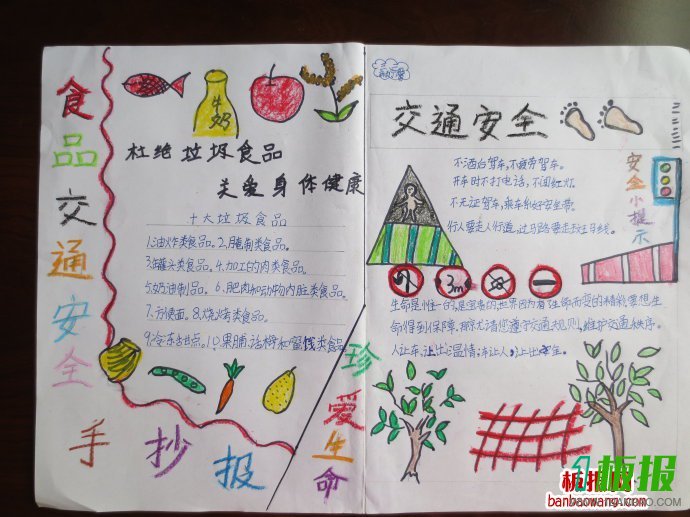 食品交通安全
手抄报
牛奶
杜绝垃圾食品
关爱身体健康
十大垃圾食品
1.油炸类食品。2.腌制类食品。
3.罐头类食品。4.加工的肉类食品。
5.奶油制品。6.肥肉和动物内脏类食品。
7.方便面。8.烧烤类食品。
9.冷冻甜点。10.果脯、话梅和蜜饯类食品
珍爱生命
交通安全
不酒后驾车,不疲劳驾车。
开车时不打电话,不闯红灯。
不无证驾车,乘车系好安全带。
行人要走人行道,过马路要走斑马线。
安全小提示
3m
生命是惟一的,是宝贵的,世界因为有了生命而变的精彩,要想生
命得到保障,那就尤请您遵守交通规则,维护交通秩序。
人让车,让出温情;车让人,让出
板报网
banbaowang.com
板报